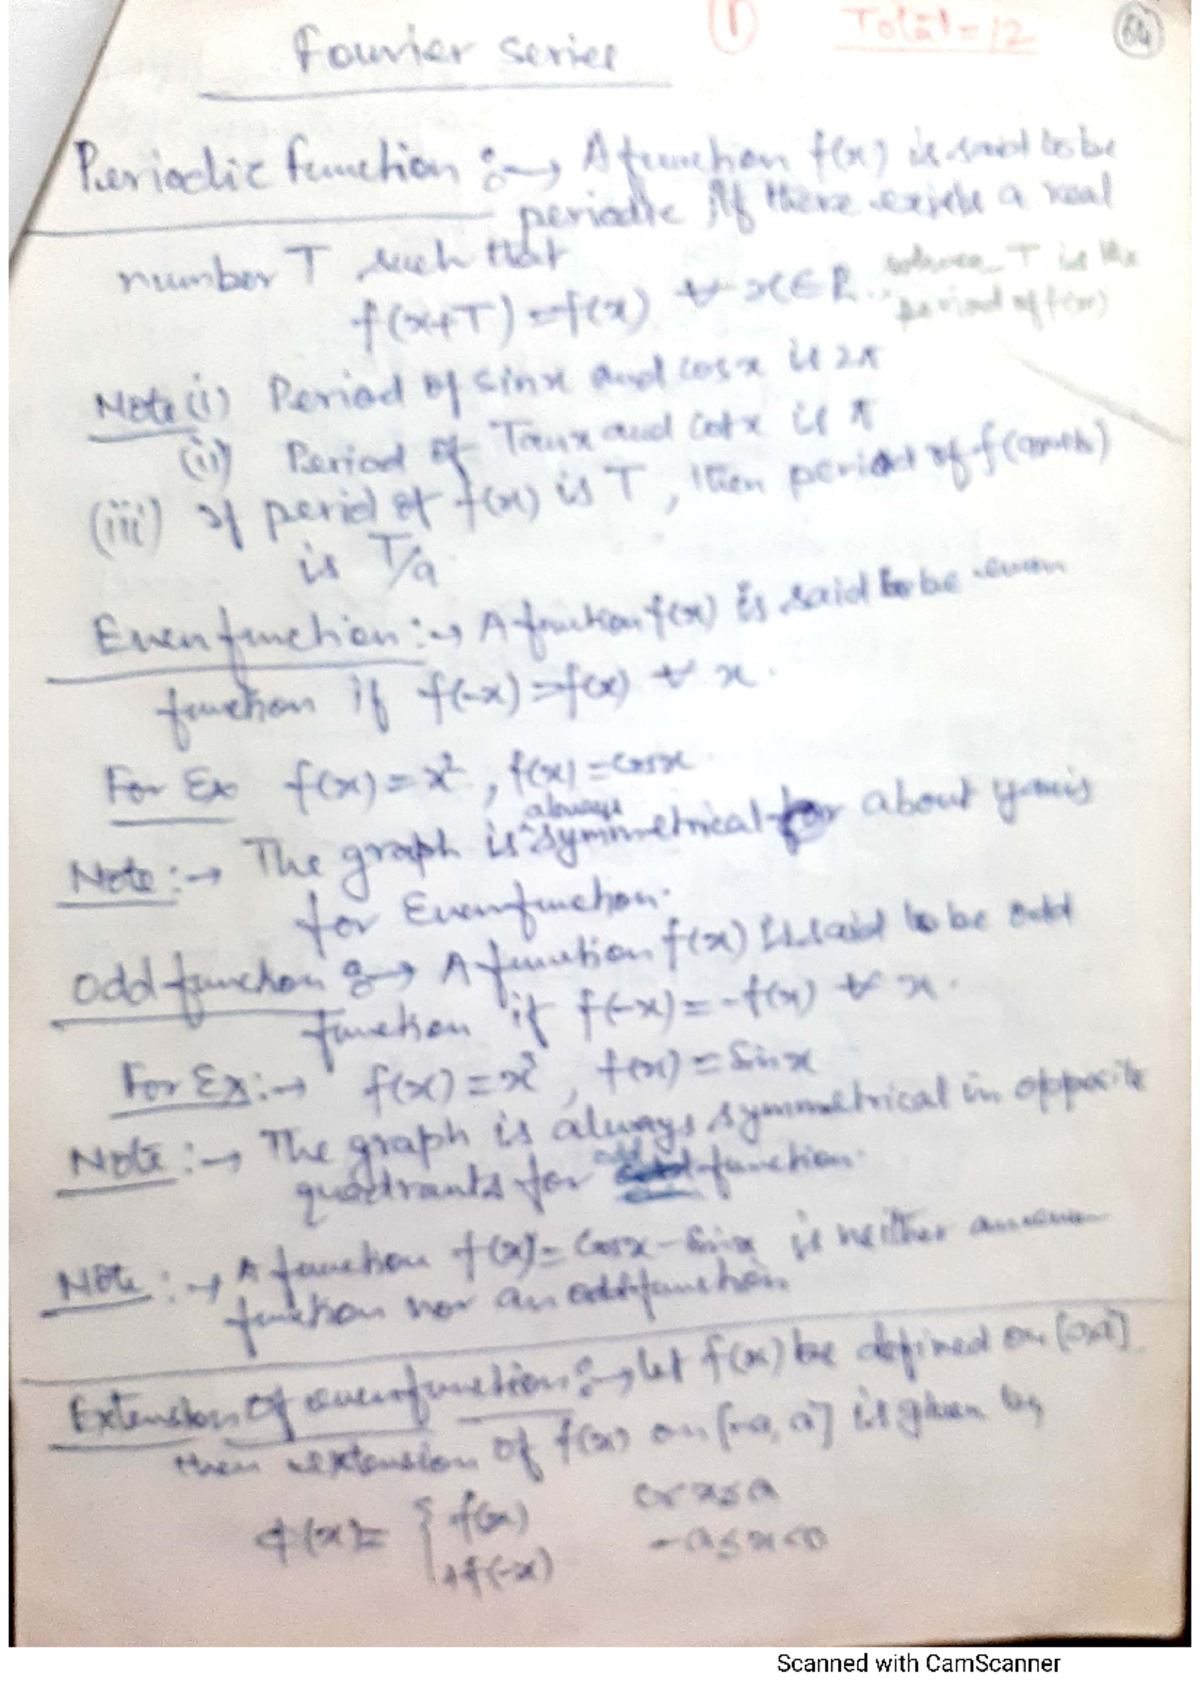 ① Total = 12 64
Fourier series
Periodic function :→ A function f(x) is said to be
periodic if there exists a real
number T such that
f(x+T) = f(x) ∀ x ∈ R. where T is the
period of f(x)
Note (i) Period of sinx and cosx is 2π
(ii) Period of Tanx and cotx is π
(iii) If period of f(x) is T, then period of f(ax+b)
is T/a.
Even function :→ A function f(x) is said to be even
function if f(-x) = f(x) ∀ x.
For Ex f(x) = x², f(x) = cosx.
Note :→ The graph is always symmetrical about y axis
for Even function.
Odd function :→ A function f(x) is said to be odd
function if f(-x) = -f(x) ∀ x.
For Ex :→ f(x) = x³, f(x) = Sinx
Note :→ The graph is always symmetrical in opposite
quadrants for odd function.
Note :→ A function f(x) = Cosx - Sinx is neither an even
function nor an odd function.
Extension of even function :→ let f(x) be defined on [0,a]
then extension of f(x) on [-a, a] is given by
φ(x) = { f(x) 0<x≤a
+f(-x) -a≤x<0
Scanned with CamScanner